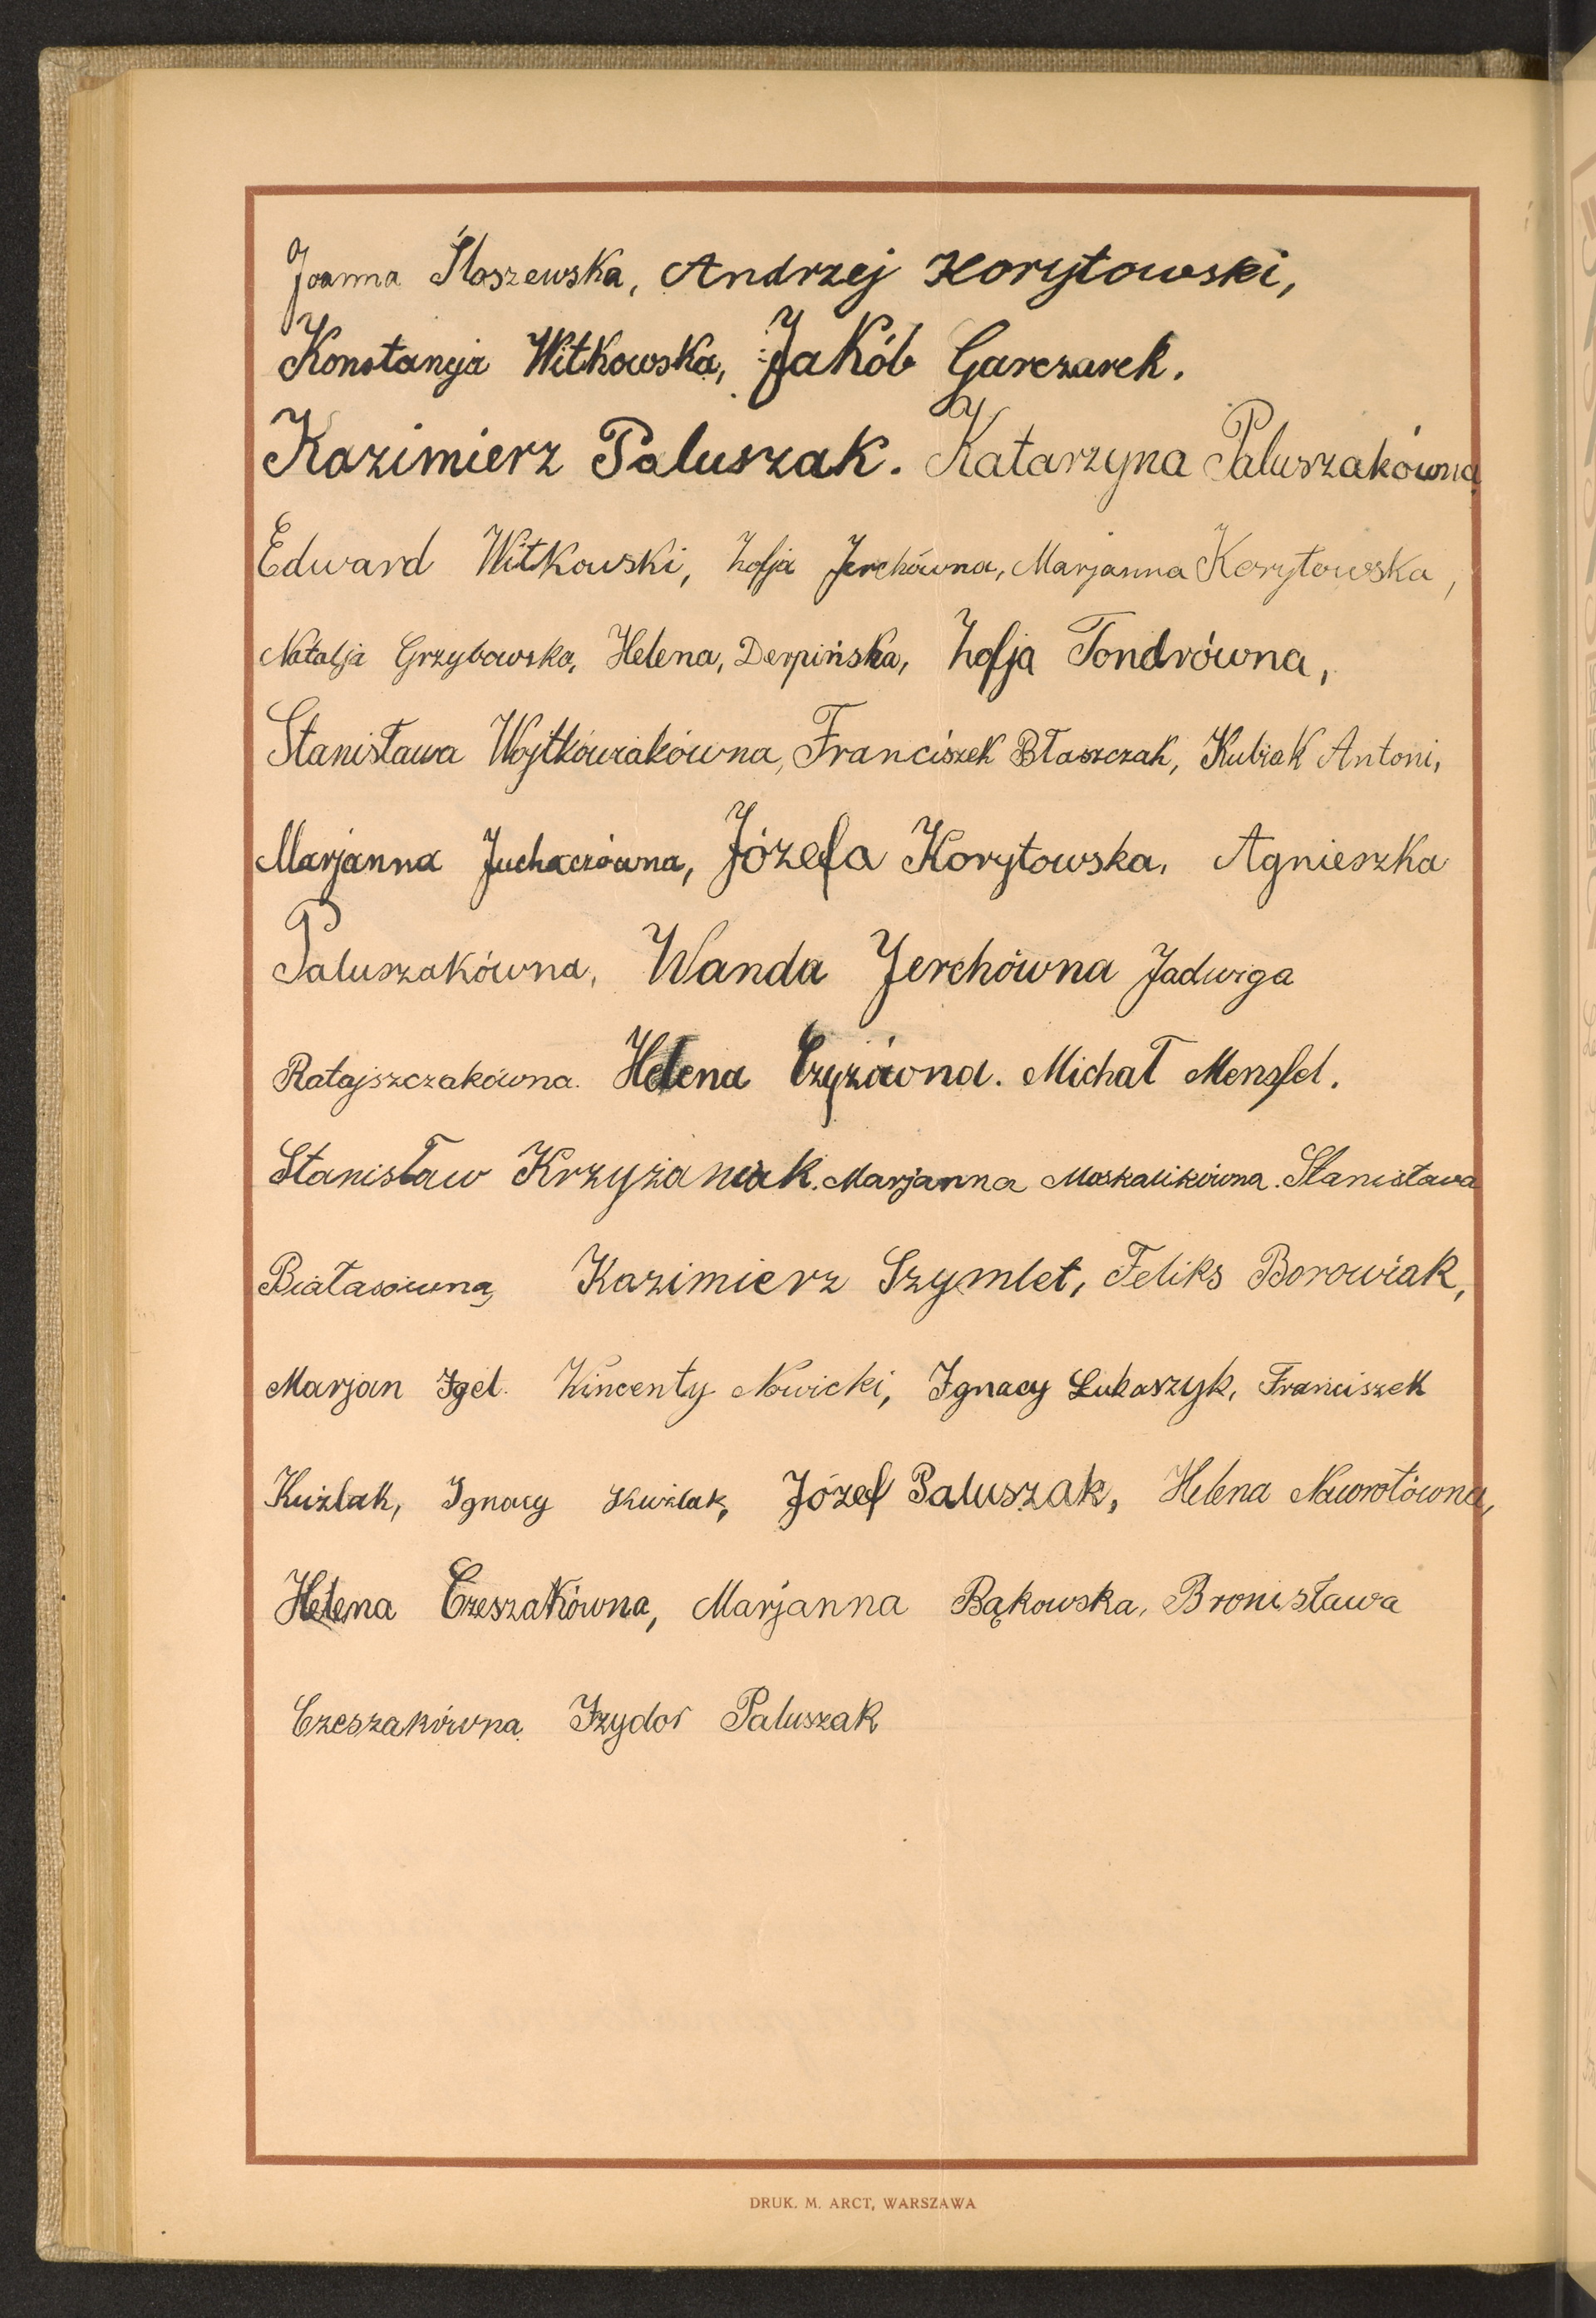 Joanna Śtaszewska, Andrzej Korytowski,
Konstancja Witkowska, Jakób Garczarek.
Kazimierz Paluszak. Katarzyna Paluszakówna
Edward Witkowski, Zofja Jerchówna, Marjanna Korytowska,
Natalja Grzybowska, Helena, Derpińska, Zofja Tondrówna,
Stanisława Wojtkówiakówna, Franciszek Błaszczak, Kubiak Antoni,
Marjanna Juchaczówna, Józefa Korytowska, Agnieszka
Paluszakówna, Wanda Jerchówna Jadwiga
Ratajszczakówna. Helena Czyżówna. Michał Mensfel.
Stanisław Krzyżaniak. Marjanna Moskalikówna. Stanisława
Białasówna, Kazimierz Szymlet, Feliks Borowiak,
Marjan Igel. Wincenty Nowicki, Ignacy Łukaszyk, Franciszek
Kuźlak, Ignacy Kuźlak, Józef Paluszak, Helena Nawrotówna,
Helena Czeszakówna, Marjanna Bąkowska, Bronisława
Czeszakówna Izydor Paluszak
DRUK. M. ARCT, WARSZAWA